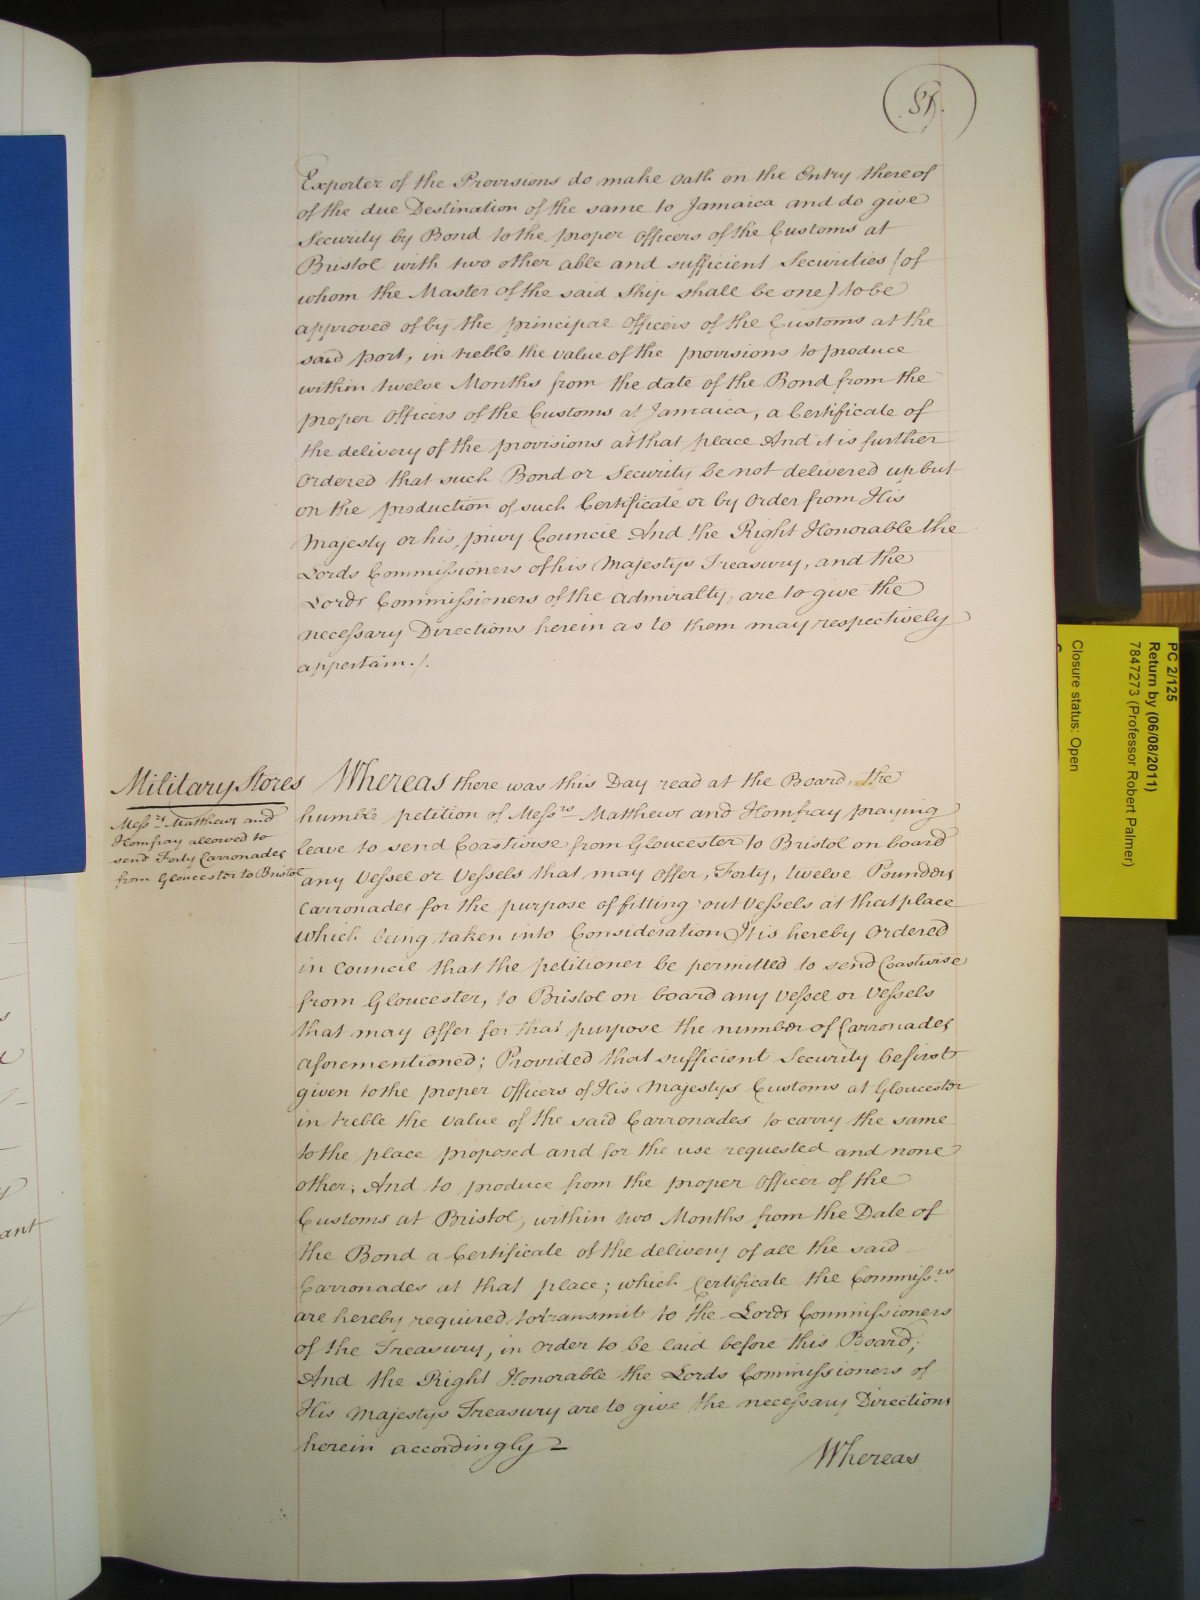 81.
Exporter of the Provisions do make Oath on the Entry thereof
of the due Destination of the same to Jamaica and do give
Security by Bond to the proper Officers of the Customs at
Bristol with two other able and sufficient Securities (of
whom the Master of the said Ship shall be one) to be
approved of by the principal Officers of the Customs at the
said port, in treble the value of the provisions to produce
within twelve Months from the date of the Bond from the
proper Officers of the Customs at Jamaica, a Certificate of
the delivery of the provisions at that place And it is further
Ordered that such Bond or Security be not delivered up but
on the production of such Certificate or by Order from His
Majesty or his privy Council And the Right Honorable the
Lords Commissioners of his Majestys Treasury, and the
Lords Commissioners of the Admiralty, are to give the
necessary Directions herein as to them may respectively
appertain./.
Military Stores
Messrs Matthews and
Homfray allowed to
send Forty Carronades
from Gloucester to Bristol
Whereas there was this Day read at the Board, the
humble petition of Messrs Matthews and Homfray praying
leave to send Coastwise from Gloucester to Bristol on board
any Vessel or Vessels that may offer, Forty, twelve Pounders
Carronades for the purpose of fitting out Vessels at that place
which being taken into Consideration It is hereby Ordered
in Council that the petitioner be permitted to send Coastwise
from Gloucester, to Bristol on board any Vessel or Vessels
that may offer for that purpose the number of Carronades
aforementioned; Provided that sufficient Security be first
given to the proper Officers of His Majestys Customs at Gloucester
in treble the Value of the said Carronades to carry the same
to the place proposed and for the use requested and none
other; And to produce from the proper Officer of the
Customs at Bristol, within two Months from the Date of
the Bond a Certificate of the delivery of all the said
Carronades at that place; which Certificate the Commissrs
are hereby required to transmit to the Lords Commissioners
of the Treasury, in Order to be laid before this Board;
And the Right Honorable the Lords Commissioners of
His Majestys Treasury are to give the necessary Directions
herein accordingly
Whereas
PC 2/125
Return by (06/08/2011)
7847273 (Professor Robert Palmer)
Closure status: Open
ant